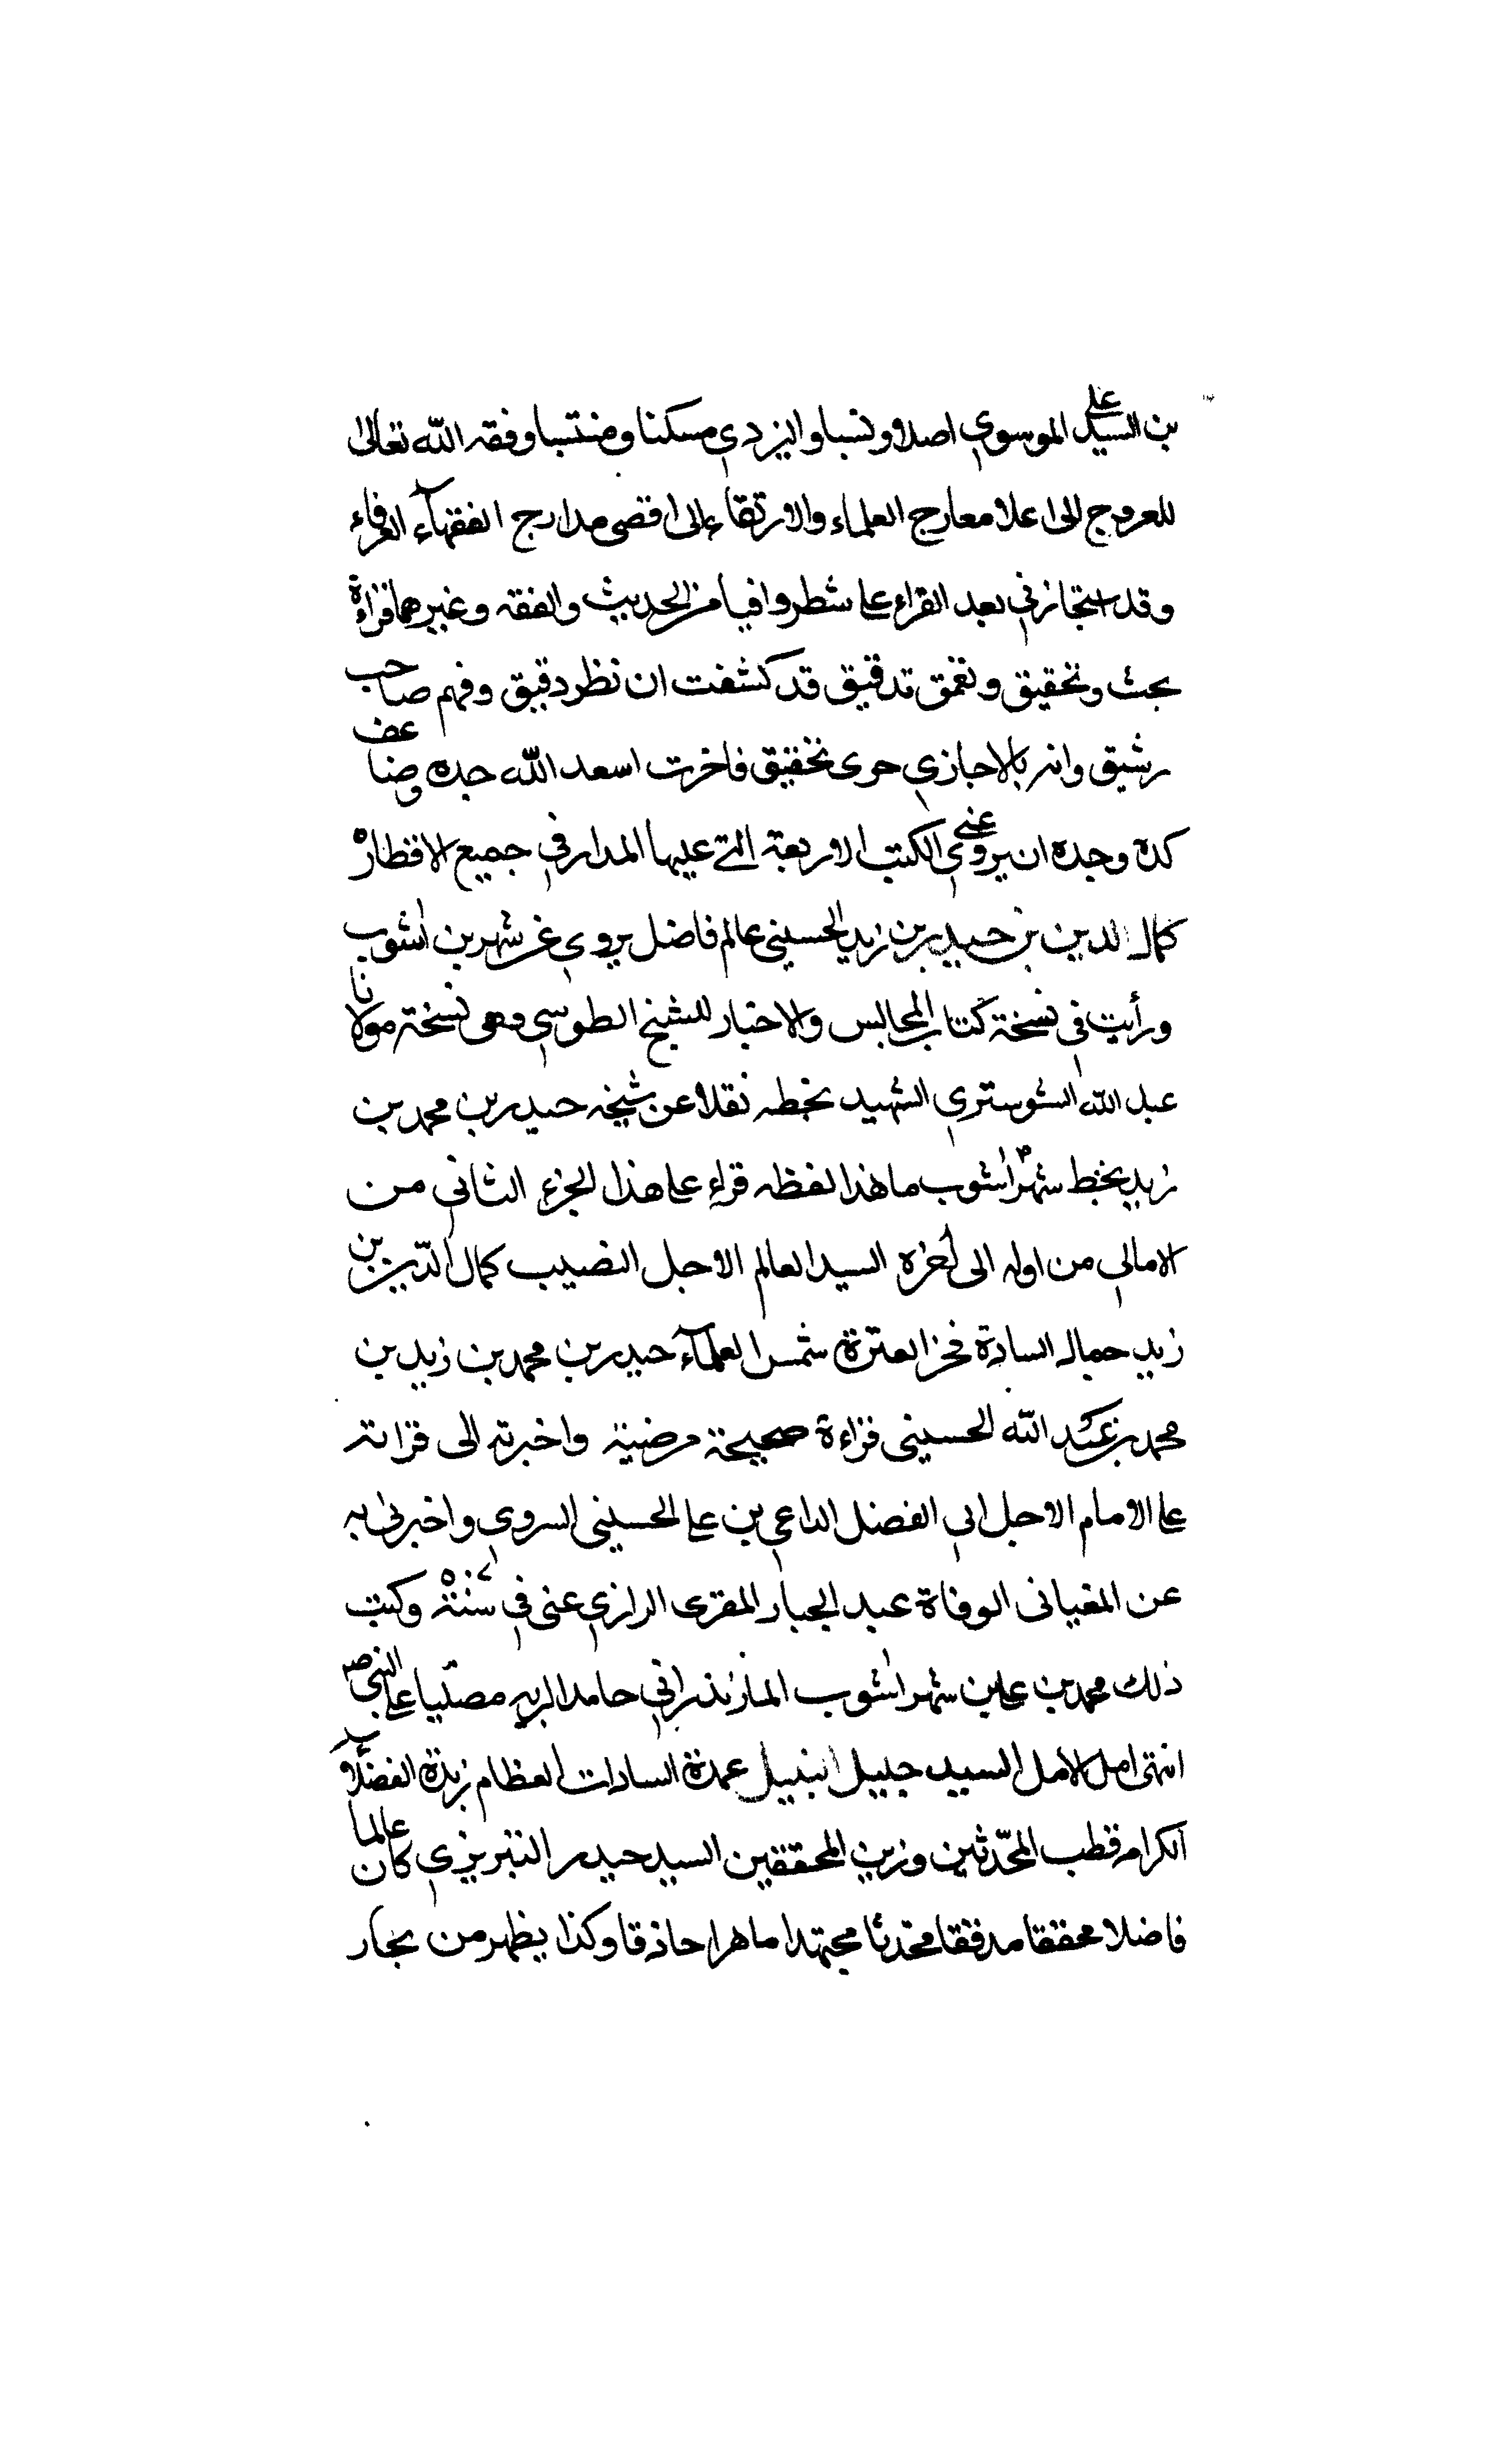 بن السيد علي الموسوي اصلا ونسبا واليزدي مسكنا ومنتسبا وفقه الله تعالى
للعروج الى اعلا معارج العلماء والارتقاء الى اقصى مدارج الفقهآء العرفاء
وقد استجازني بعد القراءة على شطر وافيا من الحديث والفقه وغيرهما قراءة
بحث وتحقيق وتعمق تدقيق قد كشفت ان نظر دقيق وفهم صاحب
رشيق وانه بالاجازي حرى تحقيق فاخرت اسعد الله جده وضاعف
كده وجده ان يروي عني الكتب الاربعة التي عليها المدار في جميع الاقطار ه
كمال الدين بن حيدر بن زيد الحسيني عالم فاضل يروي عن شهر بن اشوب
ورأيت في نسخة كتاب المجالس والاخبار للشيخ الطوسي وهي نسخة مولانا
عبد الله الشوستري الشهيد بخطه نقلا عن شيخه حيدر بن محمد بن
زيد بخط شهراشوب ما هذا لفظه قراء على هذا الجزء الثاني من
الامالي من اوله الى اخره السيد العالم الاجل النصيب كمال الدين بن
زيد جمال السادة فخر العترة شمس العلمآء حيدر بن محمد بن زيد بن
محمد بن عبد الله الحسيني قراءة صحيحة مرضية واخبرته الى قراته
على الامام الاجل ابي الفضل الداعي بن علي الحسيني السروي واخبرني به
عن المغياني الوفاة عبد الجبار المقرى الرازي عنى في سنة وكتب
ذلك محمد بن علي بن شهراشوب المازندراني حامدا لربه مصليا على النبي ص
انتهى امل الامل السيد جليل النبيل عمدة السادات العظام زبدة الفضلآء
الكرام قطب المحدثين وزين المحققين السيد حيدر التبريزي كان عالما
فاضلا محققا مدققا محدثا مجتهدا ماهرا حاذقا وكذا يظهر من بحار